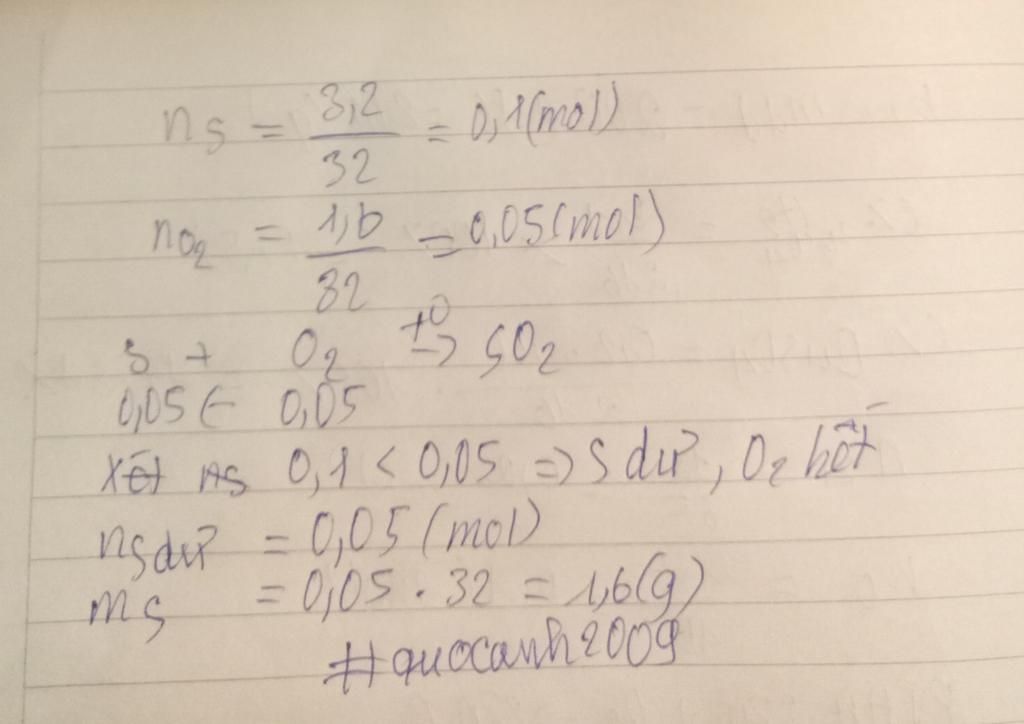 nS = 3,2/32 = 0,1(mol)
nO2 = 1,6/32 = 0,05(mol)
S + O2 t0→ SO2
0,05 ← 0,05
Xét nS 0,1 < 0,05 => S dư, O2 hết
nSdư = 0,05 (mol)
mS = 0,05 . 32 = 1,6(g)
#quocanh2009